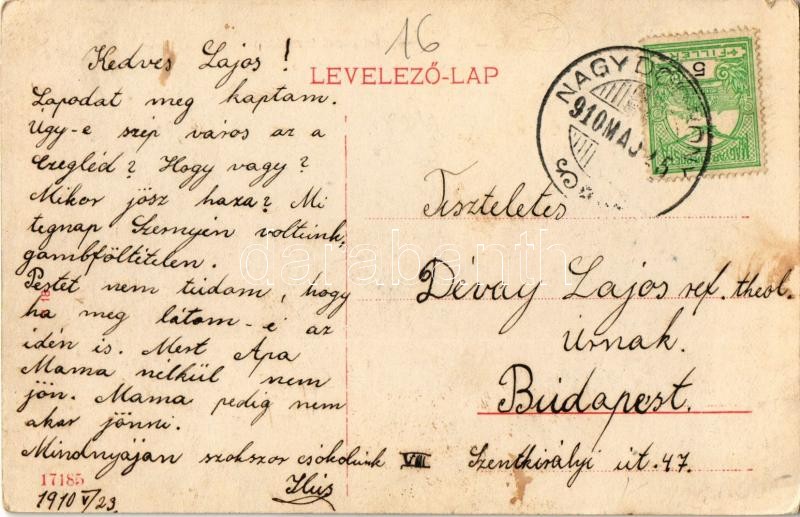 16
Kedves Lajos!
LEVELEZŐ-LAP
Lapodat meg kaptam.
Ugy-e szép város az a
Czegléd? Hogy vagy?
Mikor jösz haza? Mi
tegnap Szernyén voltunk,
gambföltételen.
Pestet nem tudom, hogy
ha meg látom-e az
idén is. Mert Apa
Mama nélkül nem
jön. Mama pedig nem
akar jönni.
Mindnyáján szokszor csókolunk
Ilus
17185
1910 V/23.
NAGYDO
910 MAJ
5
FILLÉR
Tiszteletes
Dévay Lajos ref. theol.
úrnak.
Budapest.
VIII. Szentkirályi út. 47.
darabanth